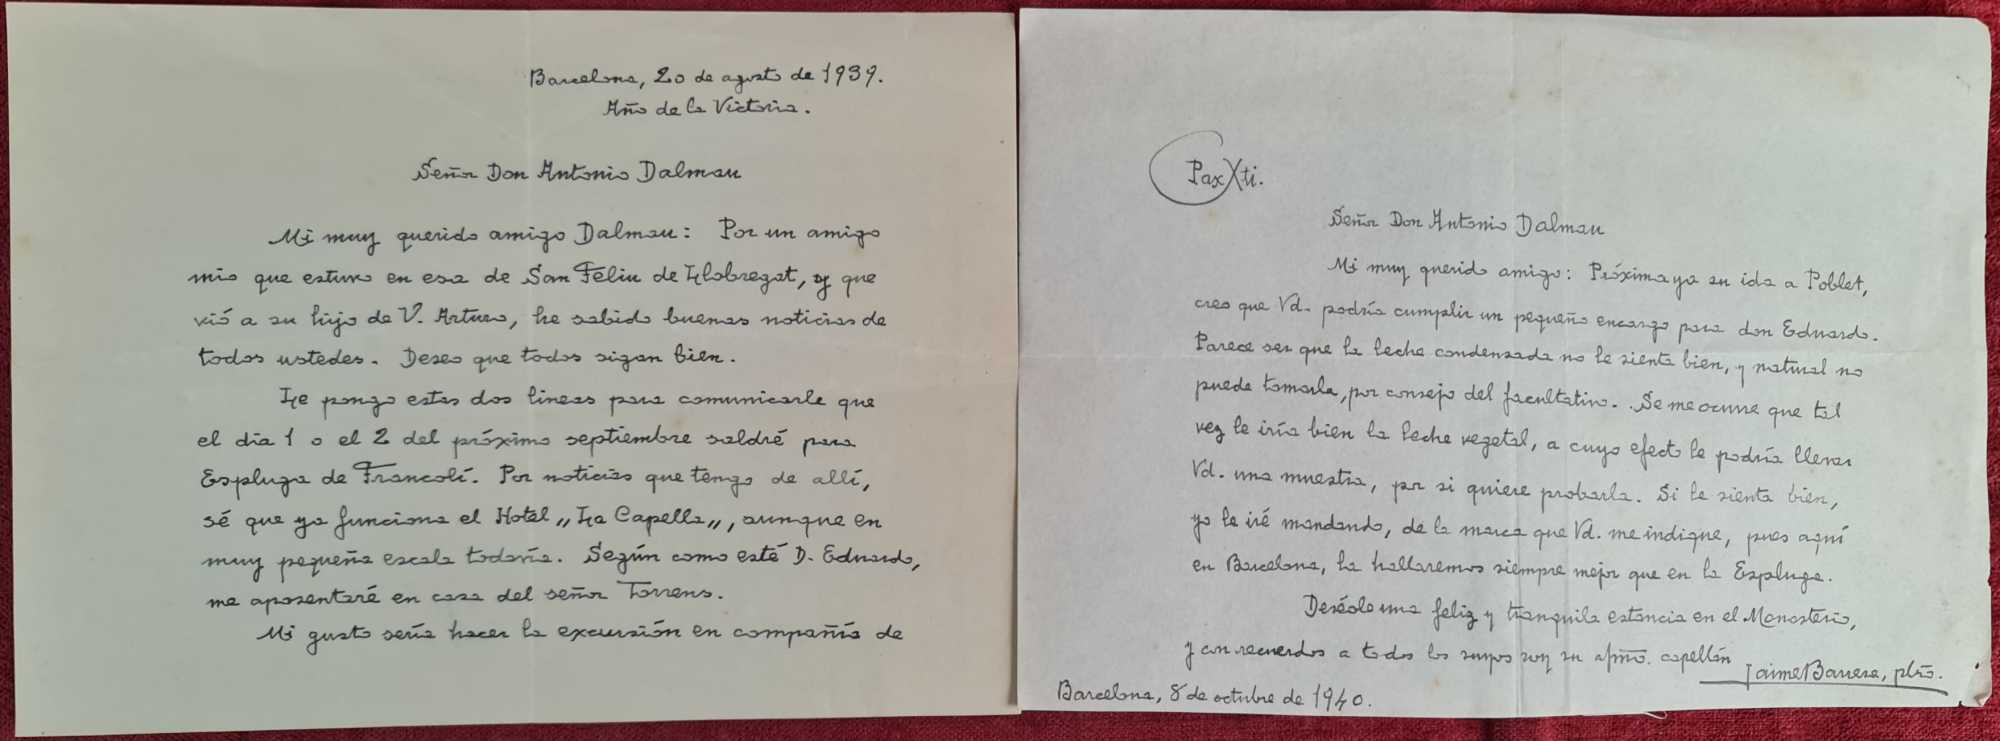 Barcelona, 20 de agosto de 1939.
Año de la Victoria.
Señor Don Antonio Dalmau
Mi muy querido amigo Dalmau: Por un amigo
mio que estuvo en esa de San Feliu de Llobregat, y que
vió a su hijo de V. Arturo, he sabido buenas noticias de
todos ustedes. Deseo que todos sigan bien.
Le pongo estas dos lineas para comunicarle que
el dia 1 o el 2 del próximo septiembre saldré para
Espluga de Francolí. Por noticias que tengo de allí,
sé que ya funciona el Hotel „La Capella„, aunque en
muy pequeña escala todavía. Según como esté D. Eduardo,
me aposentaré en casa del señor Torrens.
Mi gusto sería hacer la excursión en compañía de
Pax Xti.
Señor Don Antonio Dalmau
Mi muy querido amigo: Próxima ya su ida a Poblet,
creo que Vd. podría cumplir un pequeño encargo para don Eduardo.
Parece ser que la leche condensada no le sienta bien, y natural no
puede tomarla, por consejo del facultativo. Se me ocurre que tal
vez le iría bien la leche vegetal, a cuyo efecto le podría llevar
Vd. una muestra, por si quiere probarla. Si le sienta bien,
yo le iré mandando, de la marca que Vd. me indique, pues aquí
en Barcelona, la hallaremos siempre mejor que en la Espluga.
Deséole una feliz y tranquila estancia en el Monasterio,
y con recuerdos a todos los suyos soy su afmo. capellán
Jaime Barrera, pbro.
Barcelona, 8 de octubre de 1940.